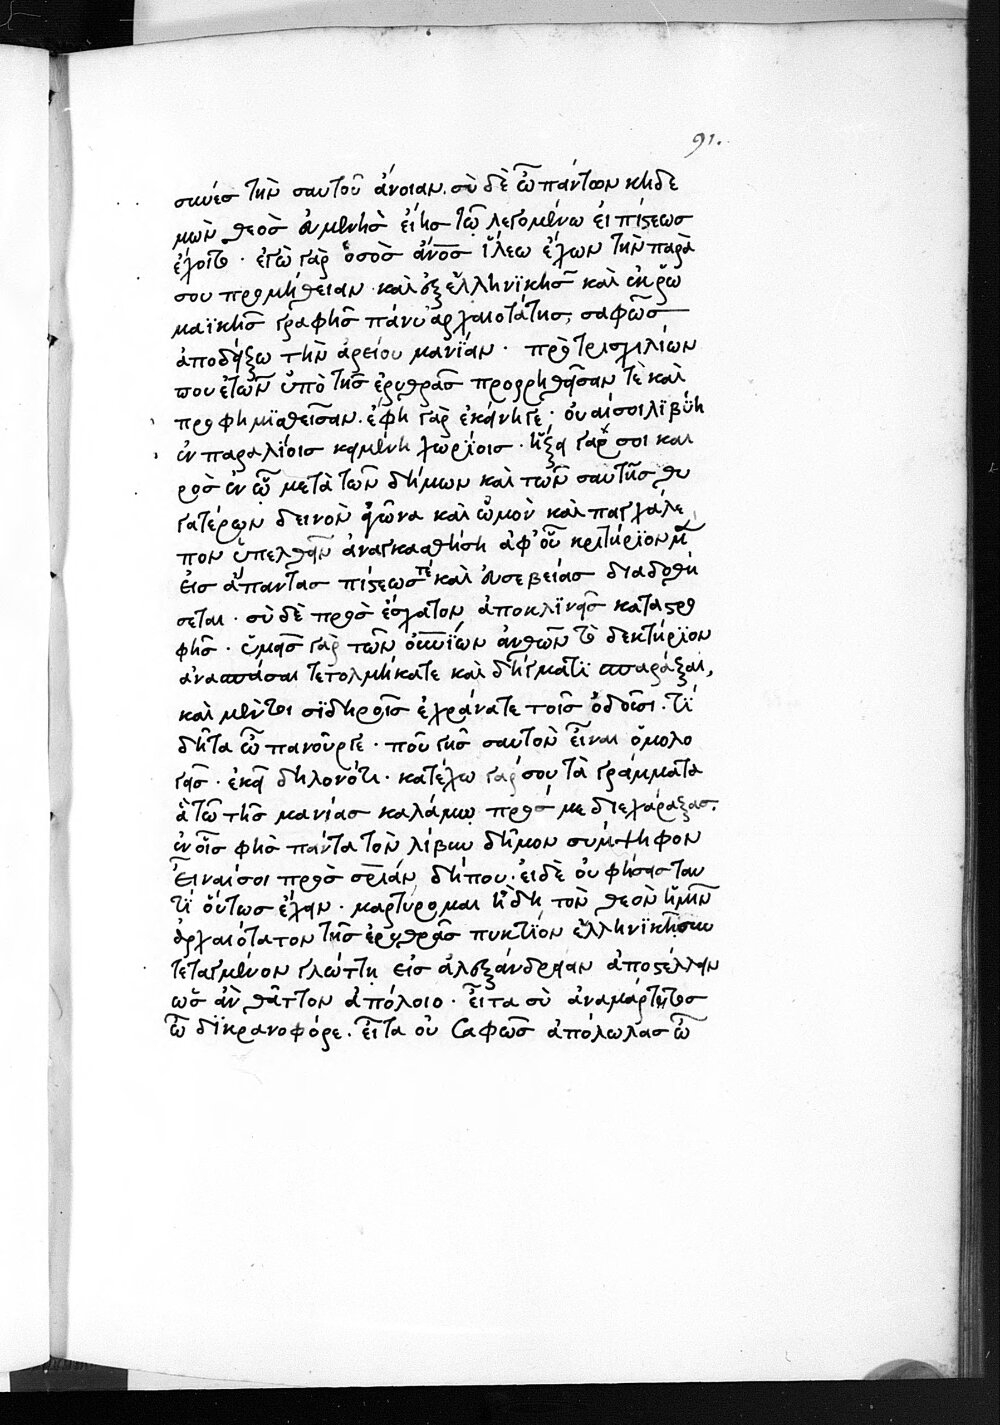 91.
σινέσ τὴν σαυτοῦ ἄνοιαν. σὺ δὲ ὦ πάντων κηδε
μὼν θεὸσ εὐμενὴσ εἴησ τῶ λεγομένω εἰ πίστεωσ
ἔχοιτο · ἐγὼ γὰρ ὅσοσ ἄνοσ ἵλεω ἔχων τὴν παρὰ
σου προμήθειαν · καὶ ἐξ ἑλληνϊκῆσ καὶ ἐκ ῥω
μαϊκῆσ γραφῆσ πάνυ ἀρχαιοτάτησ, σαφῶσ
ἀποδείξω τὴν ἀρείου μανϊαν · πρὸ τρισχιλίων
που ἐτῶν ὑπὸ τῆσ ἐρυθρᾶσ προρρηθεῖσαν τὲ καὶ
προφημϊσθεῖσαν. ἔφη γὰρ ἐκείνη γέ · οὐαί σοι λϊβύη
ἐν παραλίοισ κειμένη χωρίοισ · ἥξει γάρ σοι και
ρὸσ ἐν ᾧ μετὰ τῶν δήμων καὶ τῶν σαυτῆσ θυ
γατέρων δεινὸν ἀγῶνα καὶ ὠμὸν καὶ παγχάλε
πον ὑπελθεῖν ἀναγκασθήση ἀφ' οὗ κριτήρϊον μ
εἰσ ἅπαντασ πίστεωσ τὲ καὶ εὐσεβείασ διαδοθή
σεται · σὺ δὲ πρὸσ ἔσχατον ἀποκλϊνεῖσ καταστρο
φῆσ · ὑμεῖσ γὰρ τῶν οὐνϊων ἀνθῶν τὸ δεκτήρϊον
ἀνασπάσαι τετολμήκατε καὶ δήγματϊ σπαράξαι,
καὶ μέντοι σϊδηροῖσ ἐχράνατε τοῖσ ὀδοῦσι. τί
δῆτα ὦ πανοῦργε · ποῦ γῆσ σαυτὸν εἶναι ὁμολο
γεῖσ · ἐκεῖ δηλονότι · κατέχω γάρ σου τὰ γράμματα
ἃ τῶ τῆσ μανίασ καλάμω πρόσ με διεχάραξασ.
ἐν οἷσ φὴσ πάντα τὸν λίβυν δῆμον σύμψηφον
εἶναί σοι πρὸσ σριάν δήπου · εἰ δὲ οὐ φήσεισ ταυ
τί οὕτωσ ἔχειν · μαρτύρομαι ἤδη τὸν θεὸν ἦ μὴν
ἀρχαιότατον τῆσ ἐρυθρᾶσ πυκτίον ἑλληνϊκῆ συν
τεταγμένον γλώττη εἰσ ἀλεξάνδρειαν ἀποστέλλειν
ὡσ ἂν θᾶττον ἀπόλοιο · εἶτα σὺ ἀναμάρτητοσ
ὦ δϊκρανοφόρε. εἶτα οὐ σαφῶσ ἀπόλωλασ ὦ